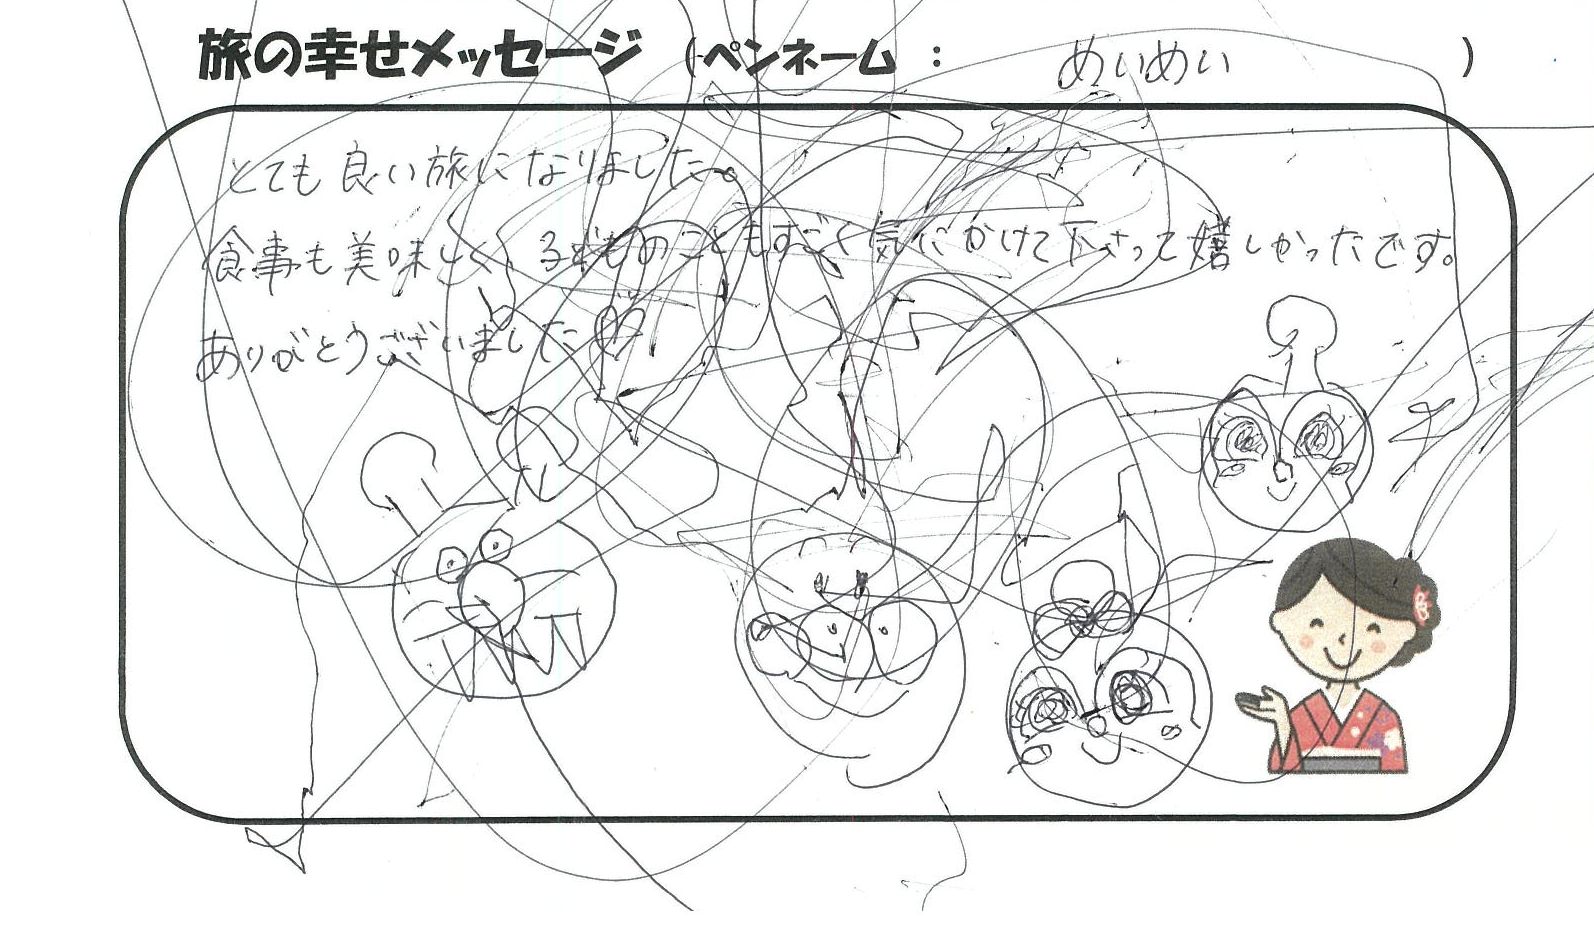 旅の幸せメッセージ (ペンネーム : めいめい )
とても良い旅になりました。
食事も美味しく、子どものこともすごく気にかけて下さって嬉しかったです。
ありがとうございました♡